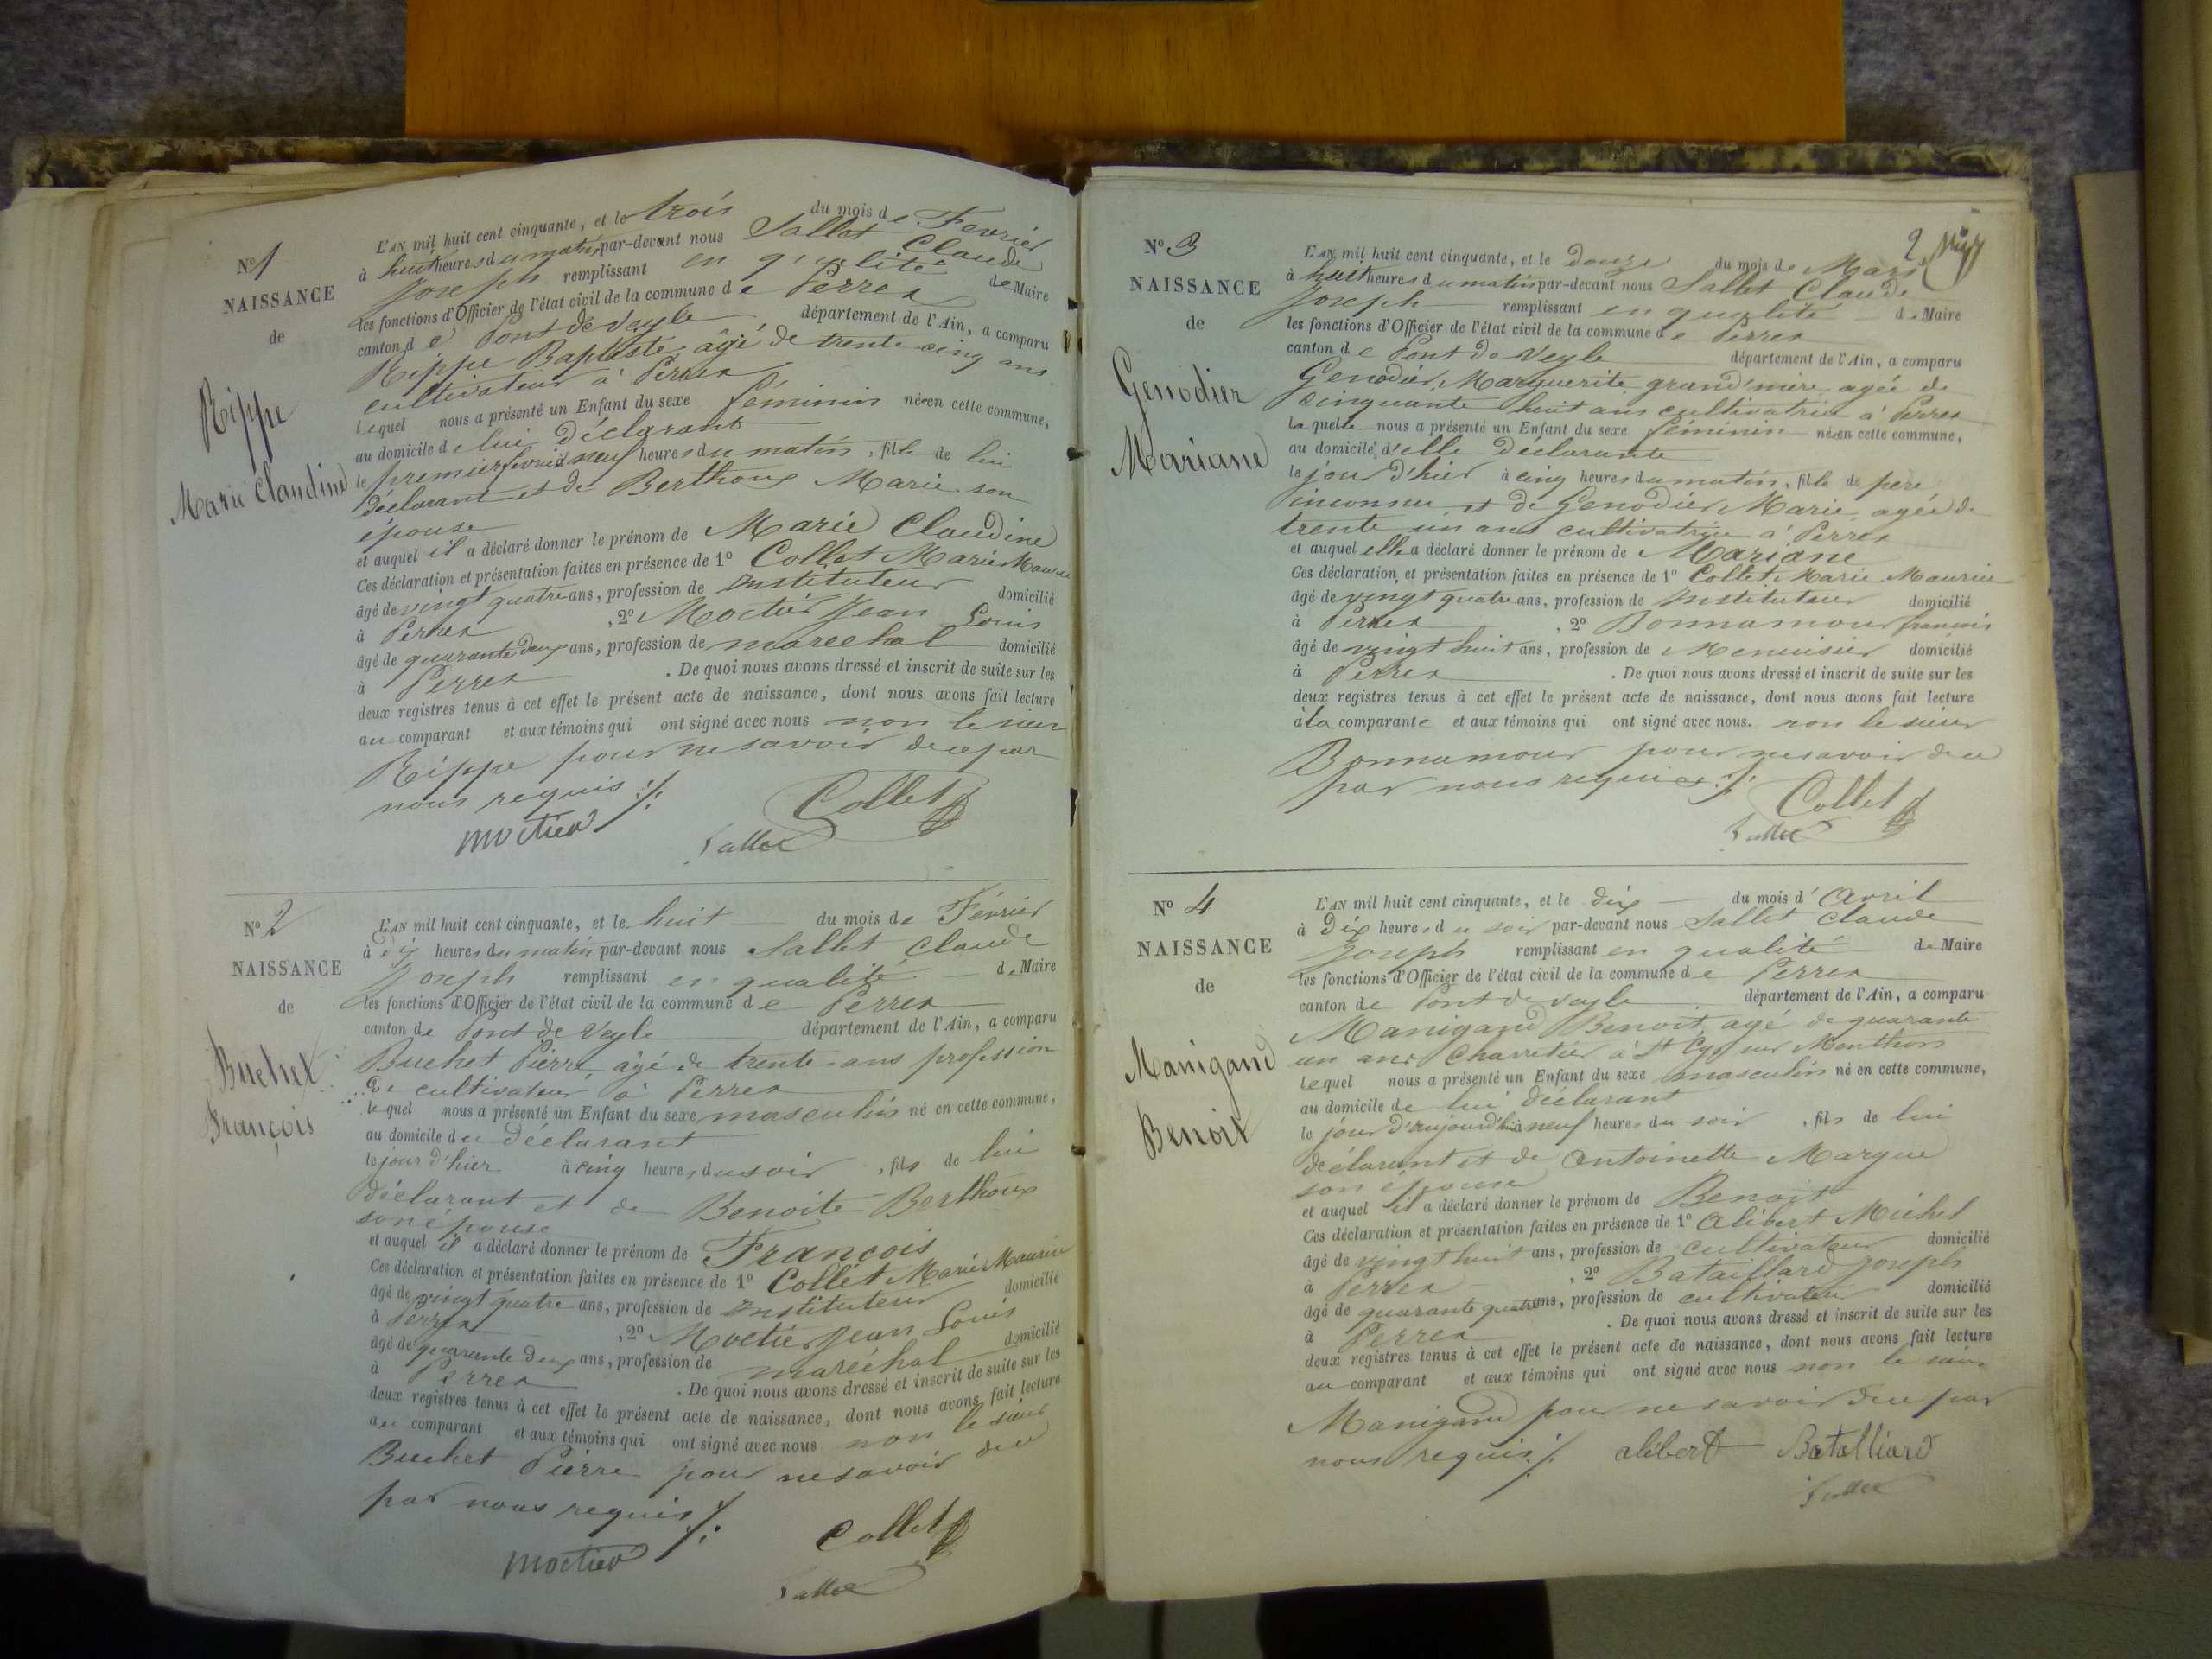 N° 1
NAISSANCE
de
Rippe
Marie Claudine
L'AN mil huit cent cinquante, et le trois du mois de Fevrier
à huit heures du matin par-devant nous Sallet Claude
Joseph remplissant en qualité de Maire
les fonctions d'Officier de l'état civil de la commune de Perrex
canton de Pont de Veyle département de l'Ain, a comparu
Rippe Baptiste, âgé de trente cinq ans
cultivateur à Perrex
lequel nous a présenté un Enfant du sexe féminin né en cette commune,
au domicile de lui déclarant
le premier fevrier à neuf heures du matin, fille de lui
déclarant et de Berthoux Marie son
épouse
et auquel il a déclaré donner le prénom de Marie Claudine
Ces déclaration et présentation faites en présence de 1° Collet Marie Maurice
âgé de vingt quatre ans, profession de Instituteur domicilié
à Perrex , 2° Moctier Jean Louis
âgé de quarante deux ans, profession de marechal domicilié
à Perrex . De quoi nous avons dressé et inscrit de suite sur les
deux registres tenus à cet effet le présent acte de naissance, dont nous avons fait lecture
au comparant et aux témoins qui ont signé avec nous non le sieur
Rippe pour ne savoir de ce par
nous requis ./.
Collet
moctier
Sallet
N° 2
NAISSANCE
de
Buchet
François
L'AN mil huit cent cinquante, et le huit du mois de Février
à dix heures du matin par-devant nous Sallet Claude
Joseph remplissant en qualité de Maire
les fonctions d'Officier de l'état civil de la commune de Perrex
canton de Pont de Veyle département de l'Ain, a comparu
Buchet Pierre, âgé de trente ans profession
de cultivateur à Perrex
lequel nous a présenté un Enfant du sexe masculin né en cette commune,
au domicile du déclarant
le jour d'hier à cinq heures du soir , fils de lui
déclarant et de Benoite Berthoux
son épouse
et auquel il a déclaré donner le prénom de François
Ces déclaration et présentation faites en présence de 1° Collet Marie Maurice
âgé de vingt quatre ans, profession de Instituteur domicilié
à Perrex , 2° Moctier Jean Louis
âgé de quarante deux ans, profession de maréchal domicilié
à Perrex . De quoi nous avons dressé et inscrit de suite sur les
deux registres tenus à cet effet le présent acte de naissance, dont nous avons fait lecture
au comparant et aux témoins qui ont signé avec nous non le sieur
Buchet Pierre pour ne savoir de ce
par nous requis ./.
Collet
moctier
Sallet
2
N° 3
NAISSANCE
de
Genodier
Mariane
L'AN mil huit cent cinquante, et le douze du mois de Mars
à huit heures du matin par-devant nous Sallet Claude
Joseph remplissant en qualité de Maire
les fonctions d'Officier de l'état civil de la commune de Perrex
canton de Pont de Veyle département de l'Ain, a comparu
Genodier, Marguerite grand'mère agée de
cinquante huit ans cultivatrice à Perrex
Laquelle nous a présenté un Enfant du sexe féminin né en cette commune,
au domicile d'elle Déclarante
le jour d'hier à cinq heures du matin, fille de père
inconnu et de Genodier Marie agée de
trente un ans cultivatrice à Perrex
et auquel elle a déclaré donner le prénom de Mariane
Ces déclaration et présentation faites en présence de 1° Collet Marie Maurice
âgé de vingt quatre ans, profession de Instituteur domicilié
à Perrex , 2° Bonnamour françois
âgé de vingt huit ans, profession de Menuisier domicilié
à Perrex . De quoi nous avons dressé et inscrit de suite sur les
deux registres tenus à cet effet le présent acte de naissance, dont nous avons fait lecture
à la comparante et aux témoins qui ont signé avec nous. non le sieur
Bonnamour pour ne savoir de ce
par nous requis ./.
Collet
Sallet
N° 4
NAISSANCE
de
Manigand
Benoit
L'AN mil huit cent cinquante, et le dix du mois d'avril
à Dix heures du soir par-devant nous Sallet Claude
Joseph remplissant en qualité de Maire
les fonctions d'Officier de l'état civil de la commune de Perrex
canton de Pont de veyle département de l'Ain, a comparu
Manigand Benoit, agé de quarante
un ans Charretier à St Cyr sur Menthon
Lequel nous a présenté un Enfant du sexe masculin né en cette commune,
au domicile de lui déclarant
le jour d'aujourd'hui à neuf heures du soir , fils de lui
déclarant et de antoinette Margue
son épouse
et auquel il a déclaré donner le prénom de Benoit
Ces déclaration et présentation faites en présence de 1° alibert Michel
âgé de vingt huit ans, profession de cultivateur domicilié
à Perrex , 2° Bataillard Joseph
âgé de quarante quatre ans, profession de cultivateur domicilié
à Perrex . De quoi nous avons dressé et inscrit de suite sur les
deux registres tenus à cet effet le présent acte de naissance, dont nous avons fait lecture
au comparant et aux témoins qui ont signé avec nous non le sieur
Manigand pour ne savoir de ce par
nous requis ./. alibert Batalliard
Sallet